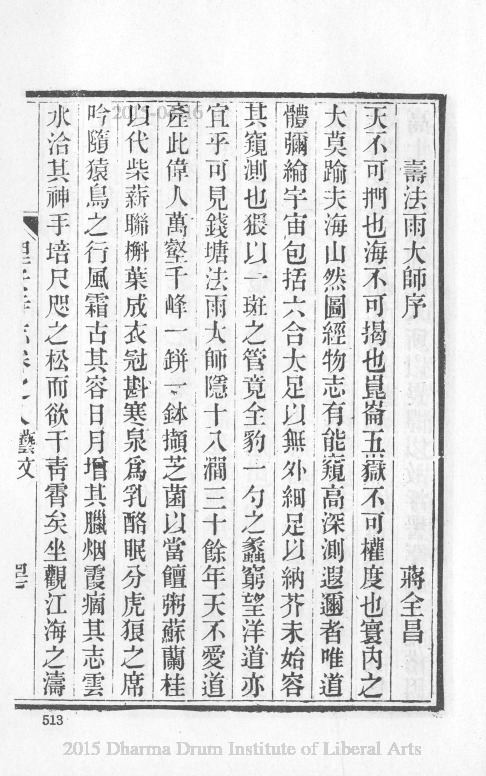 壽法雨大師序
蔣全昌
天不可捫也海不可揭也崑崙五嶽不可權度也寰內之
大莫踰夫海山然圖經物志有能窺高深測遐邇者唯道
體彌綸宇宙包括六合大足以無外細足以納芥未始容
其窺測也猥以一斑之管竟全豹一勺之蠡窮望洋道亦
宜乎可見錢塘法雨大師隱十八澗三十餘年天不愛道
產此偉人萬壑千峰一缾一鉢擷芝菌以當饘粥蘇蘭桂
以代柴薪聯槲葉成衣冠斟寒泉為乳酪眠分虎狼之席
吟隨猿鳥之行風霜古其容日月增其臘烟霞痼其志雲
水洽其神手培尺咫之松而欲干青霄矣坐觀江海之濤
卷之八藝文
513
2015 Dharma Drum Institute of Liberal Arts